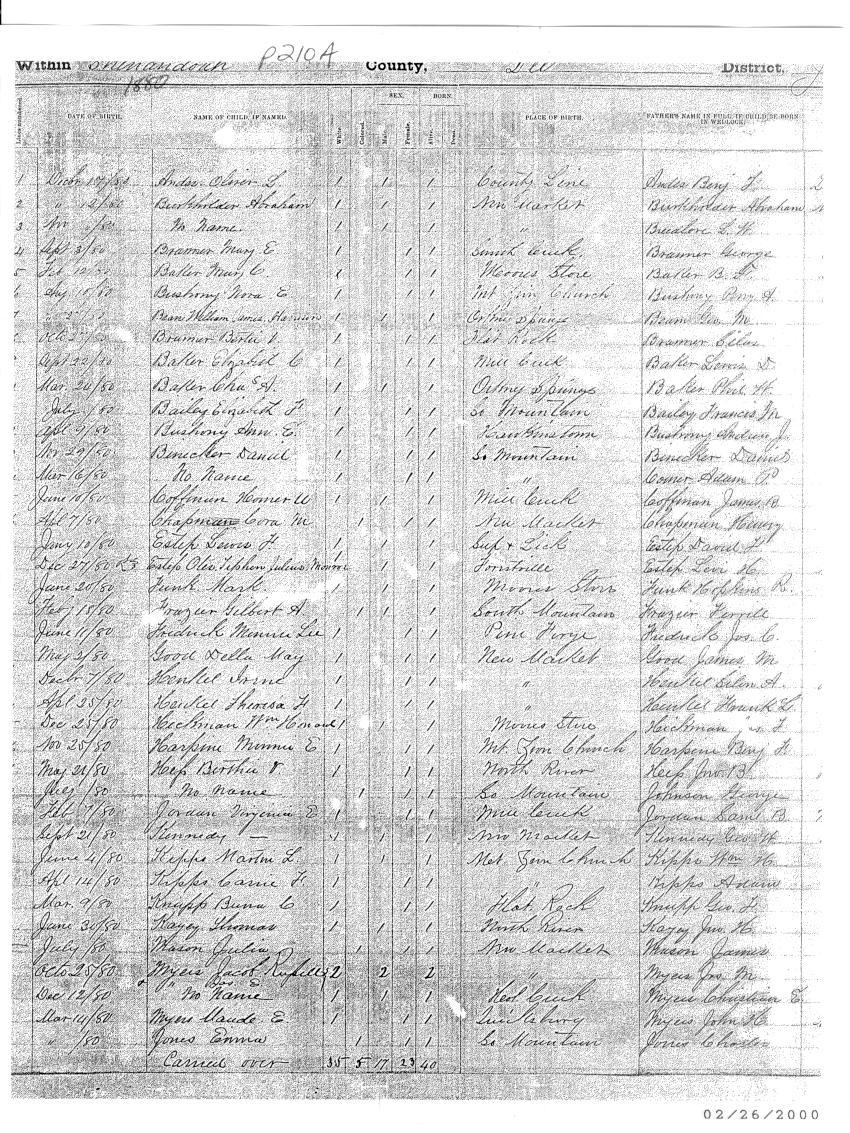 P210A
Within Shenandoah County, District,
1880
SEX. BORN.
DATE OF BIRTH. NAME OF CHILD, IF NAMED. White. Colored. Male. Female. Alive. Dead. PLACE OF BIRTH. FATHER'S NAME IN FULL, IF CHILD BE BORN IN WEDLOCK.
1 Decbr /80 Andes Oliver L 1 1 1 County Line Andes Benj F.
2 " 12/80 Burkholder Abraham 1 1 1 New Market Burkholder Abraham
3 Nov /80 No Name 1 1 1 "
4 Sept 3/80 Bramer Mary E 1 1 1 Smith Creek. Bramer George
5 Feb 12/80 Baker Mary C. 1 1 1 Moores Store Baker B. F.
6 Aug 10/80 Bushong Nora E 1 1 1 Mt Zion Church Bushong Perry A.
7 " Bean William James Harrison 1 1 1 Orkney Springs Beam Geo. M.
Oct 27/80 Bramer Bertie V 1 1 1 Flat Rock Bramer Silas
Sept 22/80 Baker Elizabet C 1 1 1 Mill Creek Baker Lewis D.
Mar 20/80 Baker Chas A. 1 1 1 Orkney Springs Baker Phil. W.
July /80 Bailey Elizabeth F 1 1 1 So Mountain Bailey Francis M
Apl 9/80 Bushong Ann. E. 1 1 1 Hawkinstown Bushong Andrew J.
Nov 29/80 Benecker Daniel 1 1 1 So Mountain Benecker Daniel
Mar 16/80 No Name 1 1 1 " Comer Adam P
June 10/80 Coffman Homer U 1 1 1 Mill Creek Coffman James R
Apl 7/80 Chapman Cora M 1 1 1 New Market Chapman Henry
Jany 10/80 Estep Lewis F. 1 1 1 Sup Lick Estep David F.
Dec 27/80 Estep Olio Tiphen Julius Monroe 1 1 1 Forestville Estep Levi H.
June 20/80 Funk Mark 1 1 1 Moores Store Funk Hopkins R.
Feby 15/80 Frazier Gilbert A 1 1 1 South Mountain Frazier Ferrell
June 11/80 Fredrick Minnie Lee 1 1 1 Pine Forge Fredrick Jos. C.
May 2/80 Good Della May 1 1 1 New Market Good James M
Decbr 7/80 Henkel Irine 1 1 1 " Henkel Silon A.
Apl 25/80 Henkel Theresa F 1 1 1 " Henkel Frank L.
Dec 25/80 Hickman Wm Howard 1 1 1 Moores Store Hickman F
Nov 25/80 Harpine Minnie E 1 1 1 Mt. Zion Church Harpine Benj F
May 21/80 Hess Berthie V 1 1 1 North River Hess Jno. B.
July /80 No Name 1 1 1 So Mountain Johnson George
Feb 7/80 Jordan Virginia E 1 1 1 Mill Creek Jordan Saml B.
Sept 21/80 Kennedy — 1 1 1 New Market Kennedy Geo W.
June 4/80 Kipps Martin L. 1 1 1 Mt. Zion Church Kipps Wm H.
Apl 14/80 Kipps Carrie F. 1 1 1 " Kipps Adam
Mar 9/80 Knupp Bena C 1 1 1 Flat Rock Knupp Geo. F.
June 30/80 Kagey Thomas 1 1 1 North River Kagey Jno. H.
July /80 Mason Julia 1 1 1 New Market Mason James
Octo 25/80 Myers Jacob Russell 2 2 2 " Myers Jos. M.
" " Jos. E
Dec 12/80 No Name 1 1 1 Creek Myers Christian E.
Mar 14/80 Myers Maude E 1 1 1 Quicksburg Myers John H.
" /80 Jones Emma 1 1 1 So Mountain Jones Charles
Carried over 35 5 17 23 40
02/26/2000